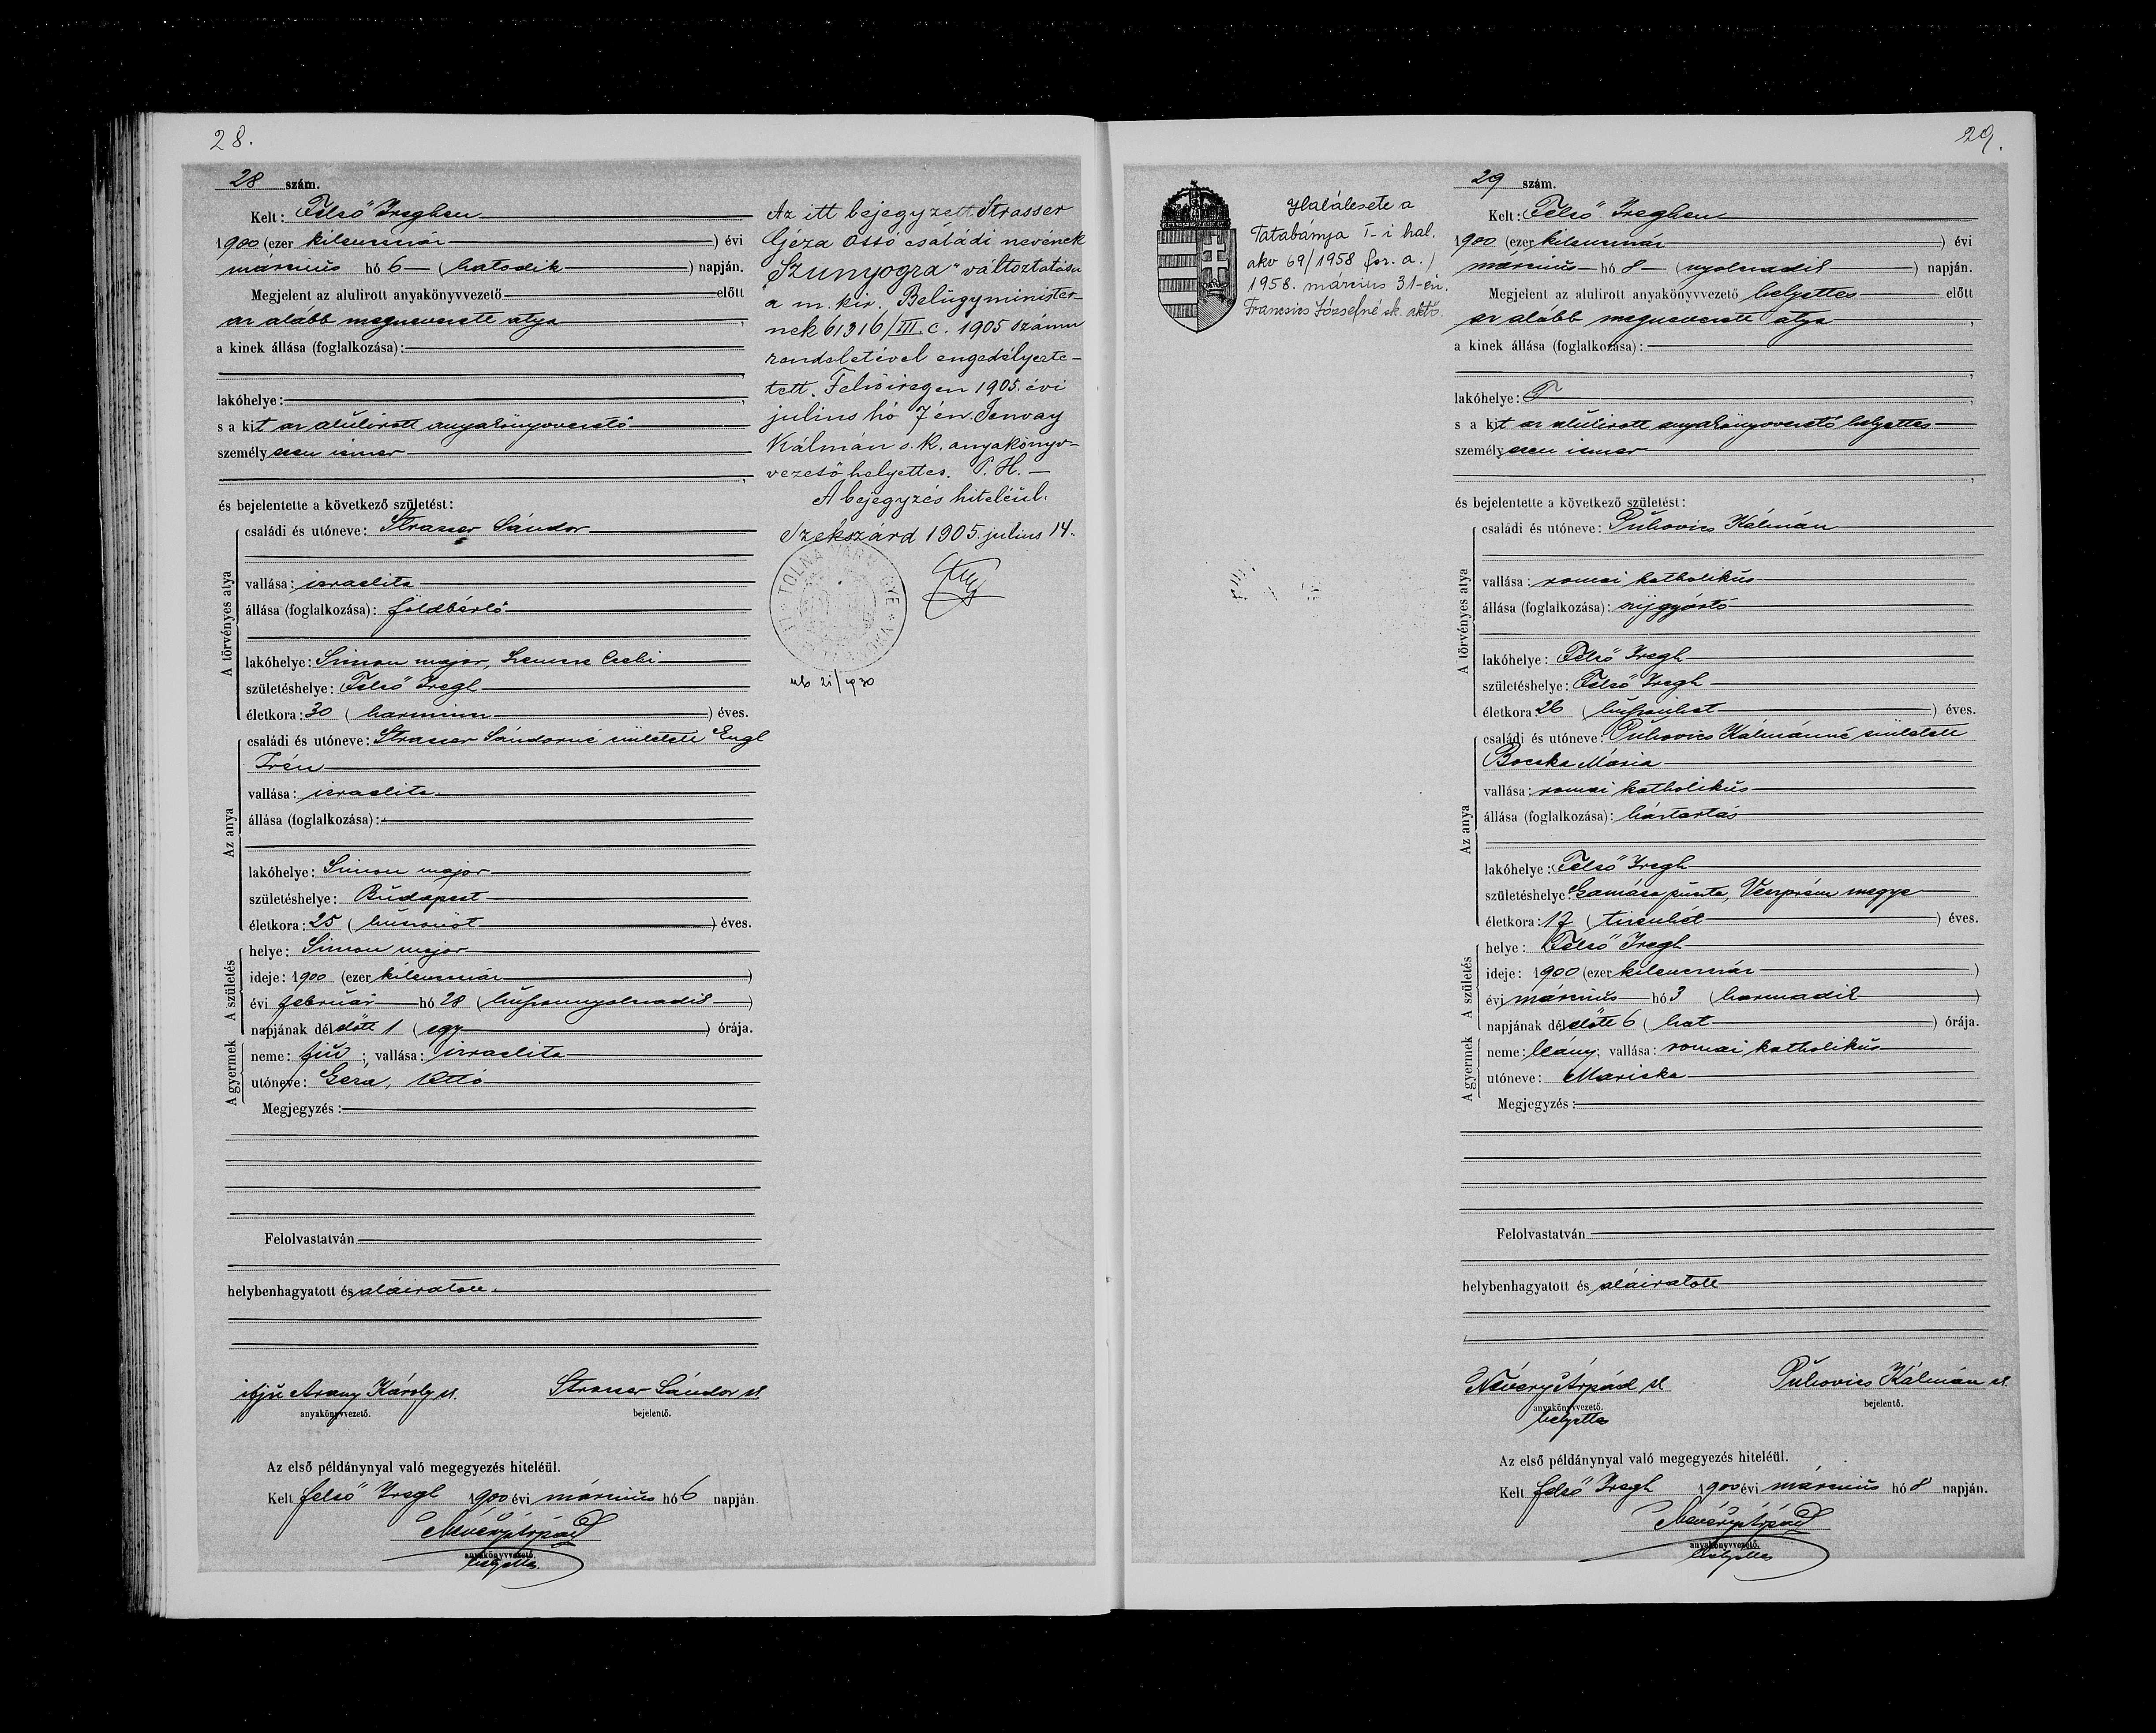 28.
28 szám.
Kelt: Felső Ireghen
1900 (ezer kilencszáz) évi
március hó 6 (hatodik) napján.
Megjelent az alulirott anyakönyvvezető előtt
az alább megnevezett atya,
a kinek állása (foglalkozása):
lakóhelye:
s a kit az alulirott anyakönyvvezető
személyesen ismer
és bejelentette a következő születést:
A törvényes atya
családi és utóneve: Strasser Sándor
vallása: izraelita
állása (foglalkozása): földbérlő
lakóhelye: Simon major,
születéshelye: Felső Iregh
életkora: 30 (harmincz) éves.
Az anya
családi és utóneve: Strasser Sándorné született Engl
Irén
vallása: izraelita
állása (foglalkozása):
lakóhelye: Simon major
születéshelye: Budapest
életkora: 25 (huszonöt) éves.
A születés
helye: Simon major
ideje: 1900 (ezer kilencszáz)
évi február hó 28 (huszonnyolcadik)
napjának délelőtt 1 (egy) órája.
A gyermek
neme: fiú; vallása: izraelita
utóneve: Géza, Ottó
Megjegyzés:
Felolvastatván
helybenhagyatott és aláiratott.
ifju Arany Károly sk. Strasser Sándor sk.
anyakönyvvezető. bejelentő.
Az első példánynyal való megegyezés hiteléül.
Kelt felső Iregh 1900 évi március hó 6 napján.
Névery Árpád
anyakönyvvezető.
helyettes.
Az itt bejegyzett Strasser
Géza Ottó családi nevének
"Szunyogra" változtatása
a m. kir. Belügyminister-
nek 61316/III. c. 1905 számu
rendeletével engedélyezte-
tett. Felsőiregen 1905. évi
julius hó 7 én. Jenvay
Kálmán s. k. anyakönyv-
vezető helyettes. P. H. —
A bejegyzés hiteléül.
Szekszárd 1905. julius 14.
TOLNA VÁRMEGYE
29.
Halálesete a
Tatabánya I-i hal.
akv 69/1958 fsz. a.)
1958. március 31-én.
Francsics Józsefné sk. akv.
29 szám.
Kelt: Felső Ireghen
1900 (ezer kilencszáz) évi
március hó 8 (nyolcadik) napján.
Megjelent az alulirott anyakönyvvezető helyettes előtt
az alább megnevezett atya,
a kinek állása (foglalkozása):
lakóhelye:
s a kit az alulirott anyakönyvvezető helyettes
személyesen ismer
és bejelentette a következő születést:
A törvényes atya
családi és utóneve: Puhovics Kálmán
vallása: romai katholikus
állása (foglalkozása): szijgyártó
lakóhelye: Felső Iregh
születéshelye: Felső Iregh
életkora: 26 (huszonhat) éves.
Az anya
családi és utóneve: Puhovics Kálmánné született
Bocska Mária
vallása: romai katholikus
állása (foglalkozása): háztartás
lakóhelye: Felső Iregh
születéshelye: Gamása puszta, Veszprém megye
életkora: 17 (tizenhét) éves.
A születés
helye: Felső Iregh
ideje: 1900 (ezer kilencszáz)
évi március hó 3 (harmadik)
napjának délelőtt 6 (hat) órája.
A gyermek
neme: leány; vallása: romai katholikus
utóneve: Mariska
Megjegyzés:
Felolvastatván
helybenhagyatott és aláiratott
Névery Árpád sk Puhovics Kálmán sk.
anyakönyvvezető. bejelentő.
helyettes
Az első példánynyal való megegyezés hiteléül.
Kelt felső Iregh 1900 évi március hó 8 napján.
Névery Árpád
anyakönyvvezető.
helyettes